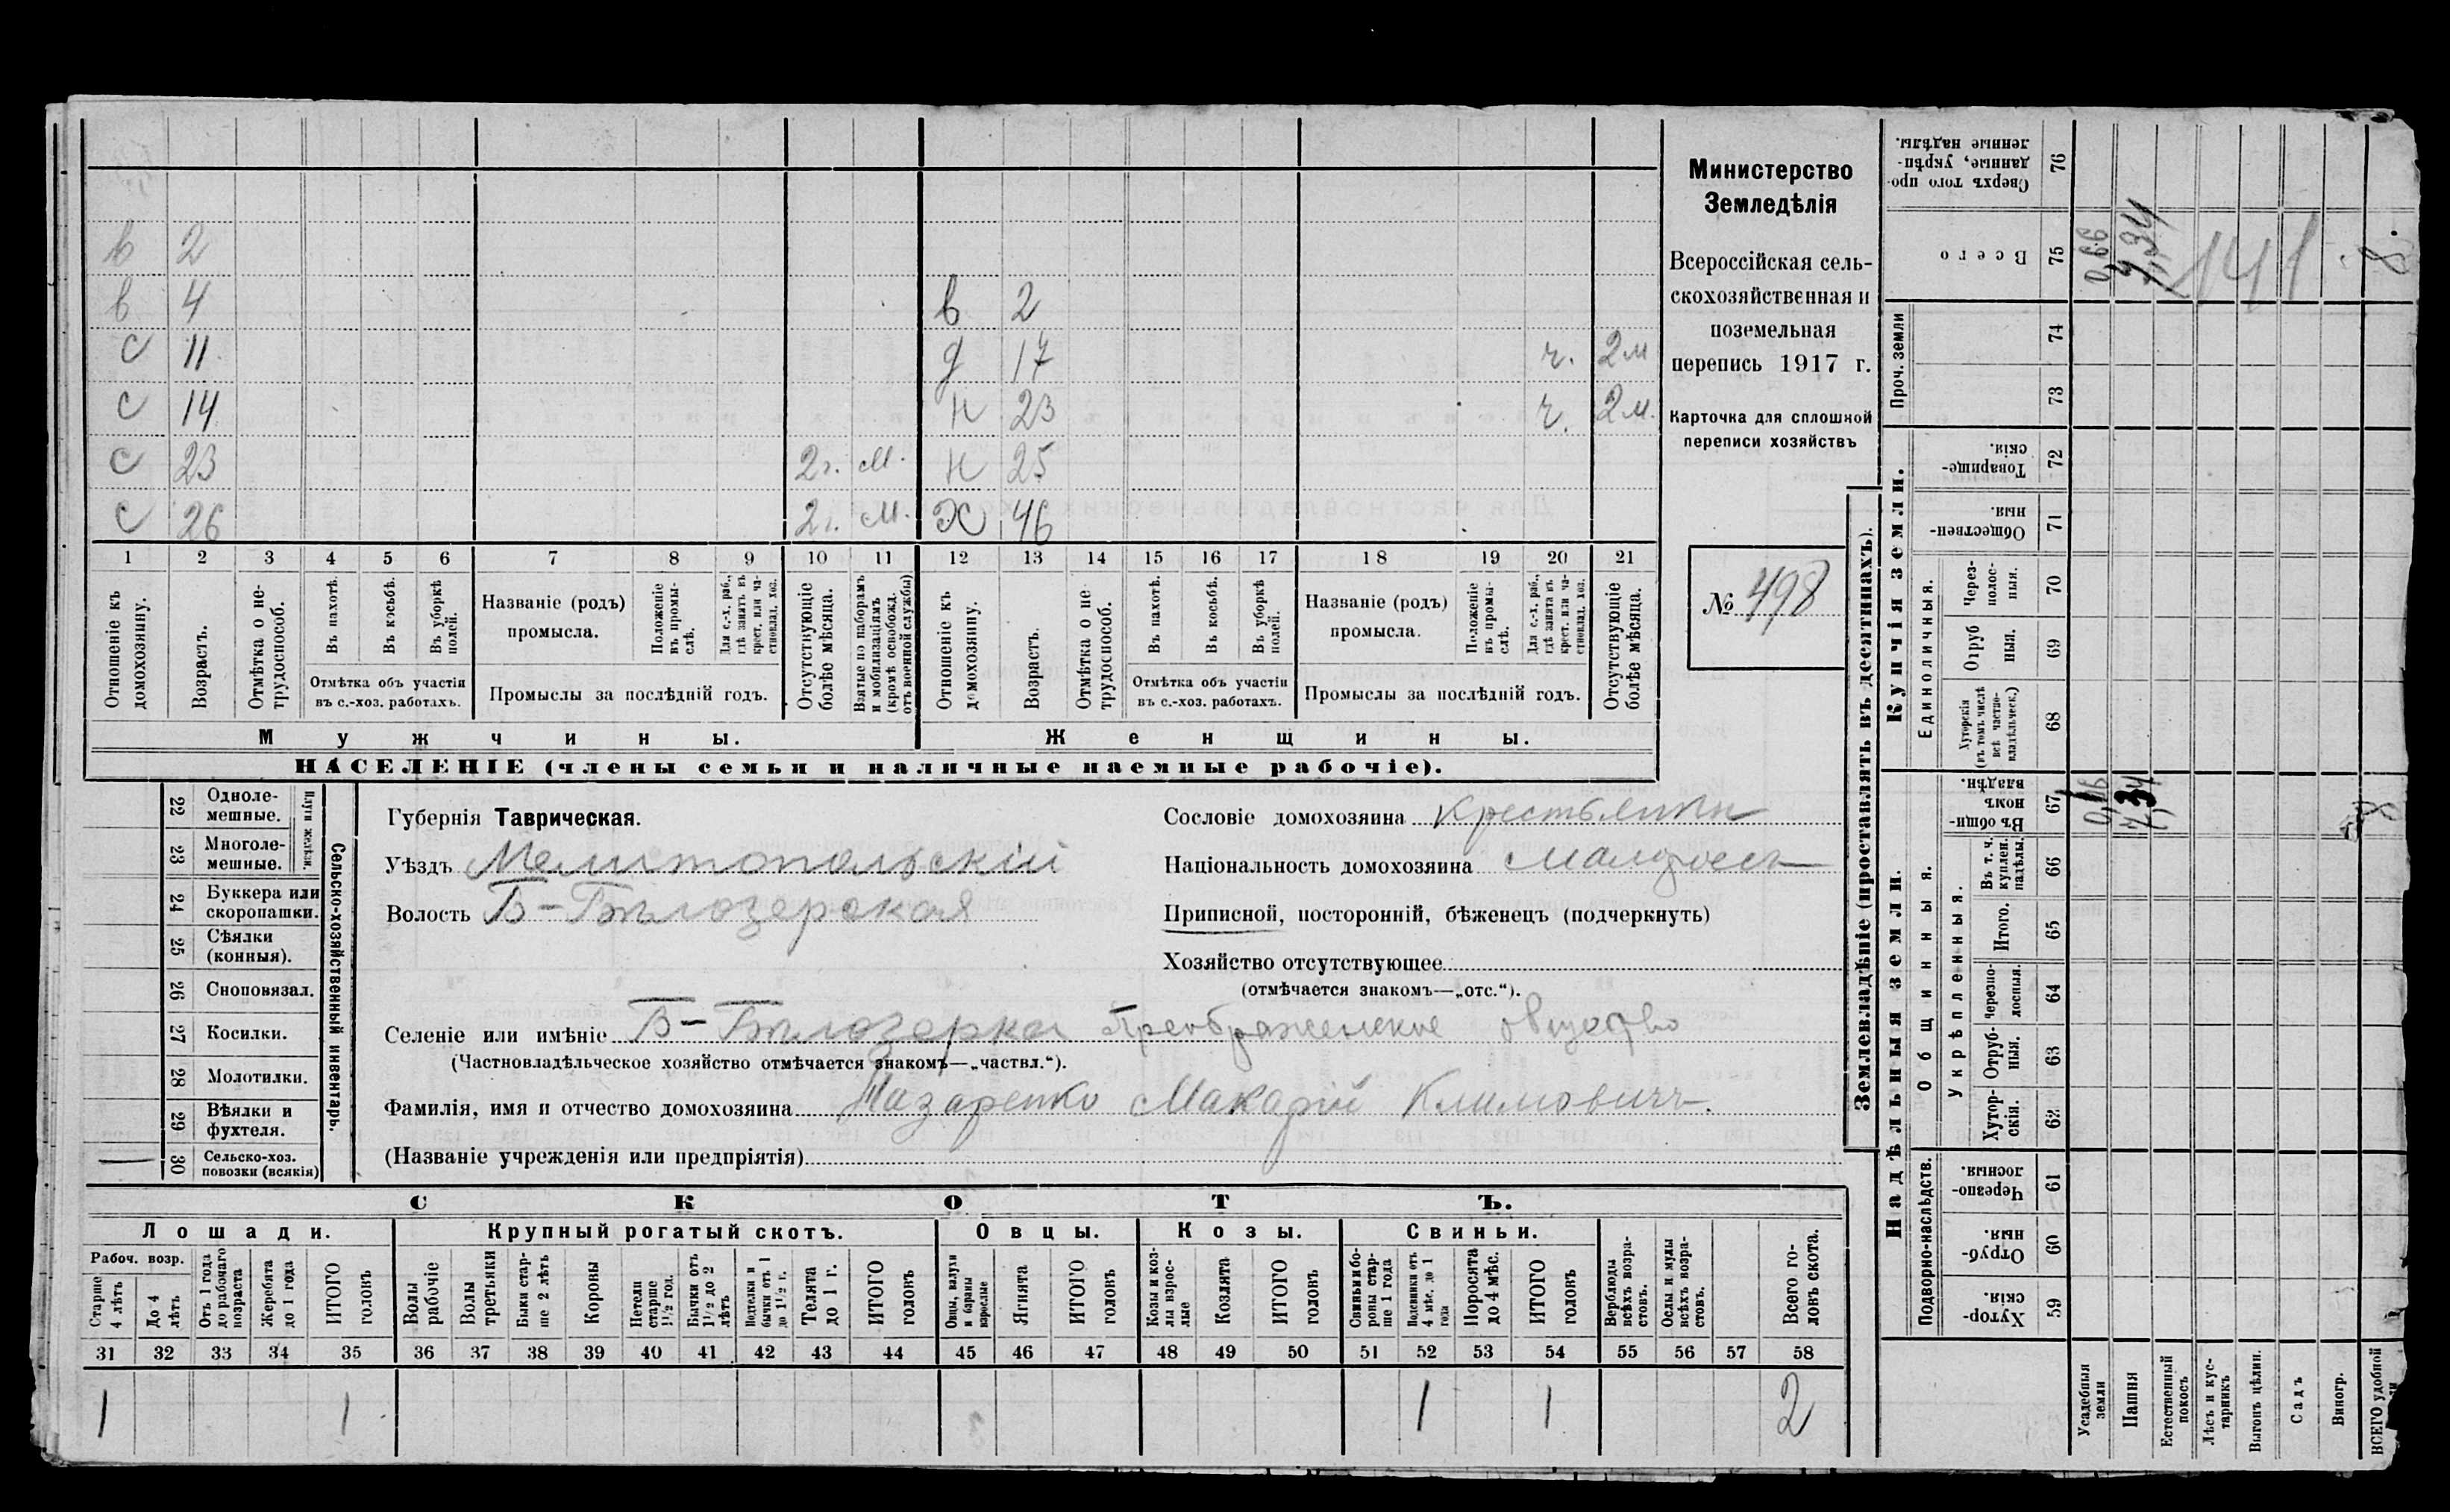 в 2
в 4 в 2
с 11 д 17 г. 2м
с 14 н 23 г. 2м.
с 23 2г. м. н 25
с 26 2г. м. Х 46
1 2 3 4 5 6 7 8 9 10 11 12 13 14 15 16 17 18 19 20 21
Отношеніе къ домохозяину.
Возрастъ.
Отмѣтка о не-трудоспособ.
Въ пахотѣ.
Въ косьбѣ.
Въ уборкѣ полей.
Отмѣтка объ участіи въ с.-хоз. работахъ.
Названіе (родъ) промысла.
Положеніе въ промы-слѣ.
Для с.-х. раб., гдѣ занятъ въ крест. или ча-стновлад. хоз.
Промыслы за послѣдній годъ.
Отсутствующіе болѣе мѣсяца.
Взятые по наборамъ и мобилизаціямъ (кромѣ освобожд. отъ военной службы)
Отношеніе къ домохозяину.
Возрастъ.
Отмѣтка о не трудоспособ.
Въ пахотѣ.
Въ косьбѣ.
Въ уборкѣ полей.
Отмѣтка объ участіи въ с.-хоз. работахъ.
Названіе (родъ) промысла.
Положеніе въ промы-слѣ.
Для с.-х. раб., гдѣ занята въ крест. или ча-стновлад. хоз.
Промыслы за послѣдній годъ.
Отсутствующіе болѣе мѣсяца.
Мужчины. Женщины.
НАСЕЛЕНІЕ (члены семьи и наличные наемные рабочіе).
Министерство
Земледѣлія
Всероссійская сель-
скохозяйственная и
поземельная
перепись 1917 г.
Карточка для сплошной
переписи хозяйствъ
№ 498
22 Одноле-мешные.
23 Многоле-мешные.
Плуги желѣзн.
24 Буккера или скоропашки.
25 Сѣялки (конныя).
26 Сноповязал.
27 Косилки.
28 Молотилки.
29 Вѣялки и фухтеля.
30 Сельско-хоз. повозки (всякія)
Сельско-хозяйственный инвентарь.
Губернія Таврическая.
Уѣздъ Мелитопольскій
Волость Б-Бѣлозерская
Сословіе домохозяина крестьянин
Національность домохозяина малоросъ
Приписной, посторонній, бѣженецъ (подчеркнуть)
Хозяйство отсутствующее
(отмѣчается знакомъ—„отс.“).
Селеніе или имѣніе Б-Бѣлозерка Преображенское общество
(Частновладѣльческое хозяйство отмѣчается знакомъ—„частвл.“).
Фамилія, имя и отчество домохозяина Назаренко Макарій Климовичъ.
(Названіе учрежденія или предпріятія)
СКОТЪ.
Лошади. Крупный рогатый скотъ. Овцы. Козы. Свиньи.
Рабоч. возр.
Старше 4 лѣтъ
До 4 лѣтъ
Отъ 1 года до рабочаго возраста
Жеребята до 1 года
ИТОГО головъ
Волы рабочіе
Волы третьяки
Быки стар-ше 2 лѣтъ
Коровы
Нетели старше 1½ год.
Бычки отъ 1½ до 2 лѣтъ
Подтелки и бычки отъ 1 до 1½ г.
Телята до 1 г.
ИТОГО головъ
Овцы, валухи и бараны взрослые
Ягнята
ИТОГО головъ
Козы и коз-лы взрос-лые
Козлята
ИТОГО головъ
Свиньи и бо-ровы стар-ше 1 года
Подсвинки отъ 4 мѣс. до 1 года
Поросята до 4 мѣс.
ИТОГО головъ
Верблюды всѣхъ возра-стовъ.
Ослы и мулы всѣхъ возра-стовъ.
Всего го-ловъ скота.
31 32 33 34 35 36 37 38 39 40 41 42 43 44 45 46 47 48 49 50 51 52 53 54 55 56 57 58
1 1 1 1 2
Землевладѣніе (проставлять въ десятинахъ).
Надѣльныя земли. Купчія земли. Проч. земли
Подворно-наслѣдств.
Общинныя.
Укрѣпленныя.
Единоличныя.
76 Сверхъ того про-данные, укрѣп-ленные надѣлы.
75 Всего 0,66 7,34 141 8
74
73
72 Товарище-скія.
71 Обществен-ныя.
70 Через-полос-ныя.
69 Отруб ныя.
68 Хуторскія (въ томъ числѣ всѣ частно-владѣльческ.)
67 Въ общин-номъ владѣн. 8
66 Въ т. ч. куплен. надѣлы.
65 Итого.
64 Черезпо-лосныя.
63 Отруб-ныя.
62 Хутор-скія.
61 Черезпо-лосныя.
60 Отруб-ныя.
59 Хутор-скія.
Усадебныя земли
Пашня
Естественный покосъ
Лѣсъ и кус-тарникъ
Выгонъ цѣлин.
Садъ
Виногр.
ВСЕГО удобной